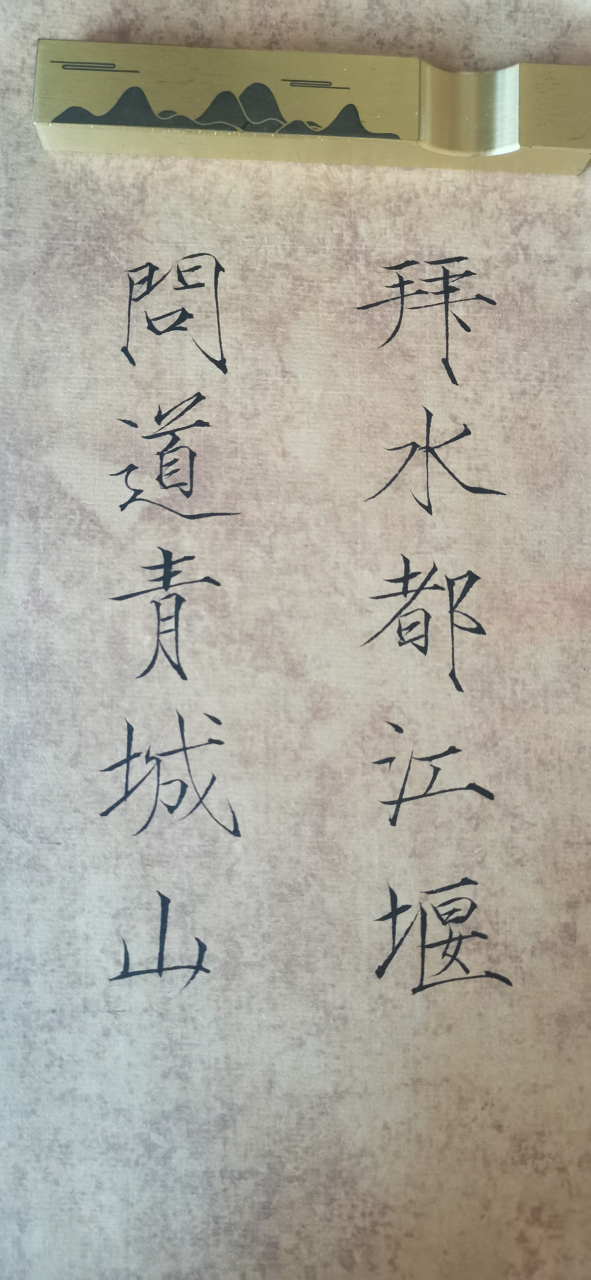 拜水都江堰
問道青城山